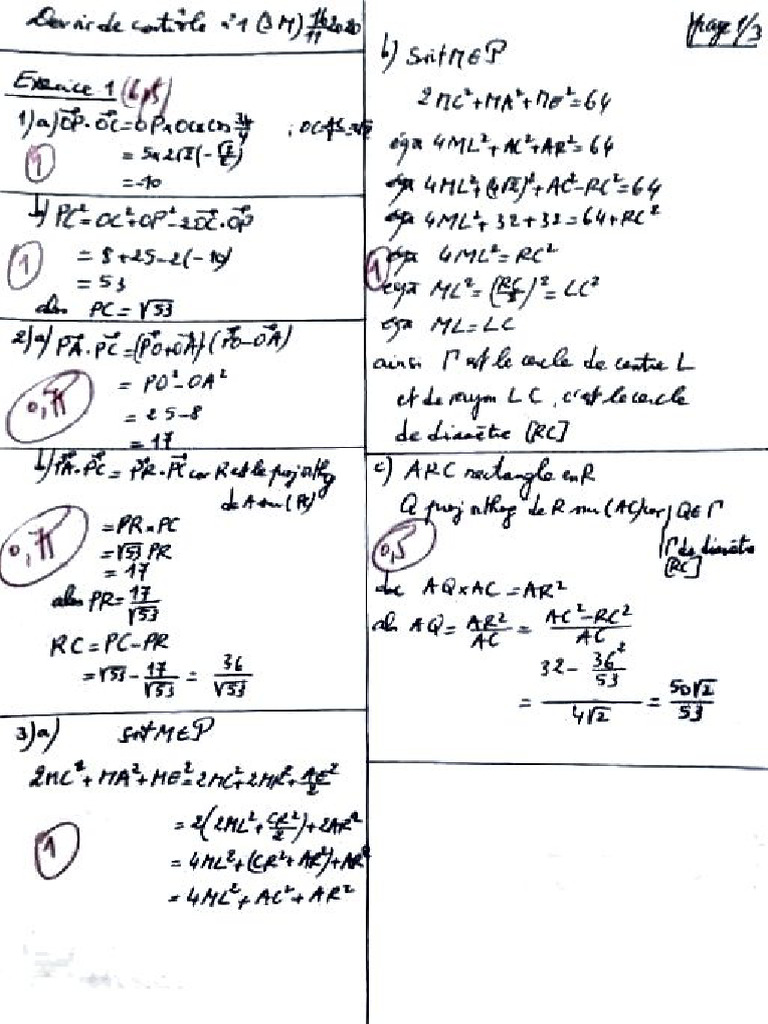 Devoir de contrôle n°1 (3M) 16/11/2020
page 1/3
Exercice 1 (6,5)
1)a) OP⃗·OC⃗ = OP×OC×cos 3π/4
= 5×2√2(-√2/2)
= -10
1
b) PC² = OC²+OP²-2OC⃗·OP⃗
= 8+25-2(-10)
= 53
1
alors PC = √53
2)a) PA⃗·PC⃗ = (PO⃗+OA⃗)·(PO⃗-OA⃗)
= PO²-OA²
= 25-8
= 17
0,75
b) PA⃗·PC⃗ = PR⃗·PC⃗ car R est le proj orthog
de A sur (PC)
= PR×PC
= √53 PR
= 17
0,75
alors PR = 17/√53
RC = PC-PR
= √53 - 17/√53 = 36/√53
3)a) soit M∈P
2MC²+MA²+ME² = 2MC²+2MR²+AE²/2
= 2(2ML²+CR²/2)+2AR²
= 4ML²+(CR²+AR²)+AR²
= 4ML²+AC²+AR²
1
b) Soit M∈P
2MC²+MA²+ME² = 64
éqv 4ML²+AC²+AR² = 64
éqv 4ML²+(4√2)²+AC²-RC² = 64
éqv 4ML²+32+32 = 64+RC²
éqv 4ML² = RC²
1
éqv ML² = (RC/2)² = LC²
éqv ML = LC
ainsi Γ est le cercle de centre L
et de rayon LC, c'est le cercle
de diamètre [RC]
c) ARC rectangle en R
Q proj orthog de R sur (AC) car Q∈Γ
Γ de diamètre
[RC]
0,5
donc AQ×AC = AR²
alr AQ = AR²/AC = (AC²-RC²)/AC
= (32 - 36²/53)/4√2 = 50√2/53